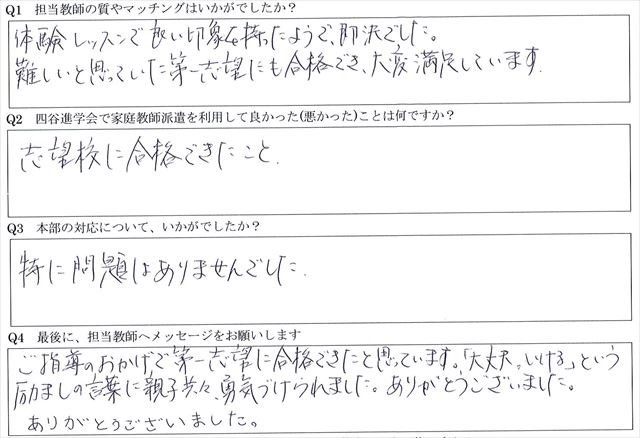 Q1 担当教師の質やマッチングはいかがでしたか？
体験レッスンで良い印象を持ったようで、即決でした。
難しいと思っていた第一志望にも合格でき、大変満足しています.
Q2 四谷進学会で家庭教師派遣を利用して良かった(悪かった)ことは何ですか？
志望校に合格できたこと.
Q3 本部の対応について、いかがでしたか？
特に問題はありませんでした.
Q4 最後に、担当教師へメッセージをお願いします
ご指導のおかげで第一志望に合格できたと思っています。「大丈夫。いける」という
励ましの言葉に親子共々、勇気づけられました。ありがとうございました。
ありがとうございました。